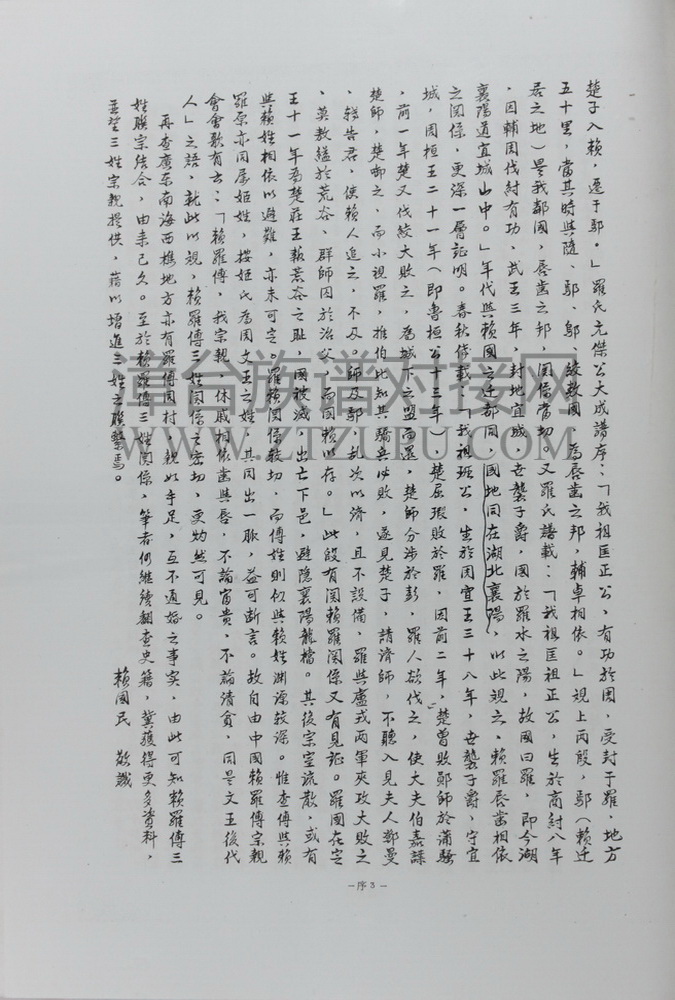 楚子入賴，遷于鄢。」羅氏元傑公大成譜序：「我祖匡正公，有功於周，受封于羅，地方
五十里，當其時與隨、鄖、鄔、絞數國，為唇齒之邦，輔車相依。」視上两段，鄢（賴迁
居之地）是我鄰國，唇齒之邦，関係當切，又羅氏譜載：「我祖匡祖正公，生於商紂八年
，因輔周伐紂有功，武王三年，封地宜城，世襲子爵，國於羅水之陽，故國曰羅，即今湖
襄陽道宜城山中。」年代與賴國之迁鄢同，國地同在湖北襄陽，以此視之，賴羅唇齒相依
之関係，更深一層証明。春秋修載「我祖班公，生於周宣王三十八年，世襲子爵，守宜
城，周桓王二十一年（即魯桓公十三年），楚屈瑕敗於羅，因前二年，楚曾敗鄖師於蒲騷
，前一年楚又伐絞大敗之，為城下之盟而還，楚師分涉於彭，羅人欲伐之，使大夫伯嘉諜
楚師，楚啣之，而小視羅，推伯比知其驕兵必敗，遂見楚子，請濟師，不聽入見夫人鄧曼
，轉告君，使賴人追之，不及。師及鄢，乱次以濟，且不設備，羅與盧戎两軍夾攻大敗之
，莫敖縊於荒谷，群師囚於治父，而周賴以存。」此段有関賴羅関係又有見証。羅國在定
王十一年為楚莊王報荒谷之耻，國被滅，出亡下邑，避隐襄陽龍檔。其後宗室流散，或有
與賴姓相依以避難，亦未可定。羅賴関係較切，而傅姓則似與賴姓淵源較深。惟查傅與賴
羅原亦同属姬姓，按姬氏為周文王之姓，其同出一脈，益可断言。故自由中國賴羅傅宗親
會會歌有云：「賴羅傅，我宗親，休戚相依齒與唇，不論富貴，不論清貧，同是文王後代
人」之語，就此以視，賴羅傅三姓関係之密切，更灼然可見。
再查廣东南海西樵地方亦有羅傅同村，親如手足，互不通婚之事实，由此可知賴羅傅三
姓联宗结合，由來已久。至於賴羅傅三姓関係，筆者仍继續翻查史籍，冀獲得更多資料，
並望三姓宗親提供，藉以增進三姓之联繫焉。
賴國民　敬識
—序3—
道台族谱对接网
WWW.ZTZUPU.COM